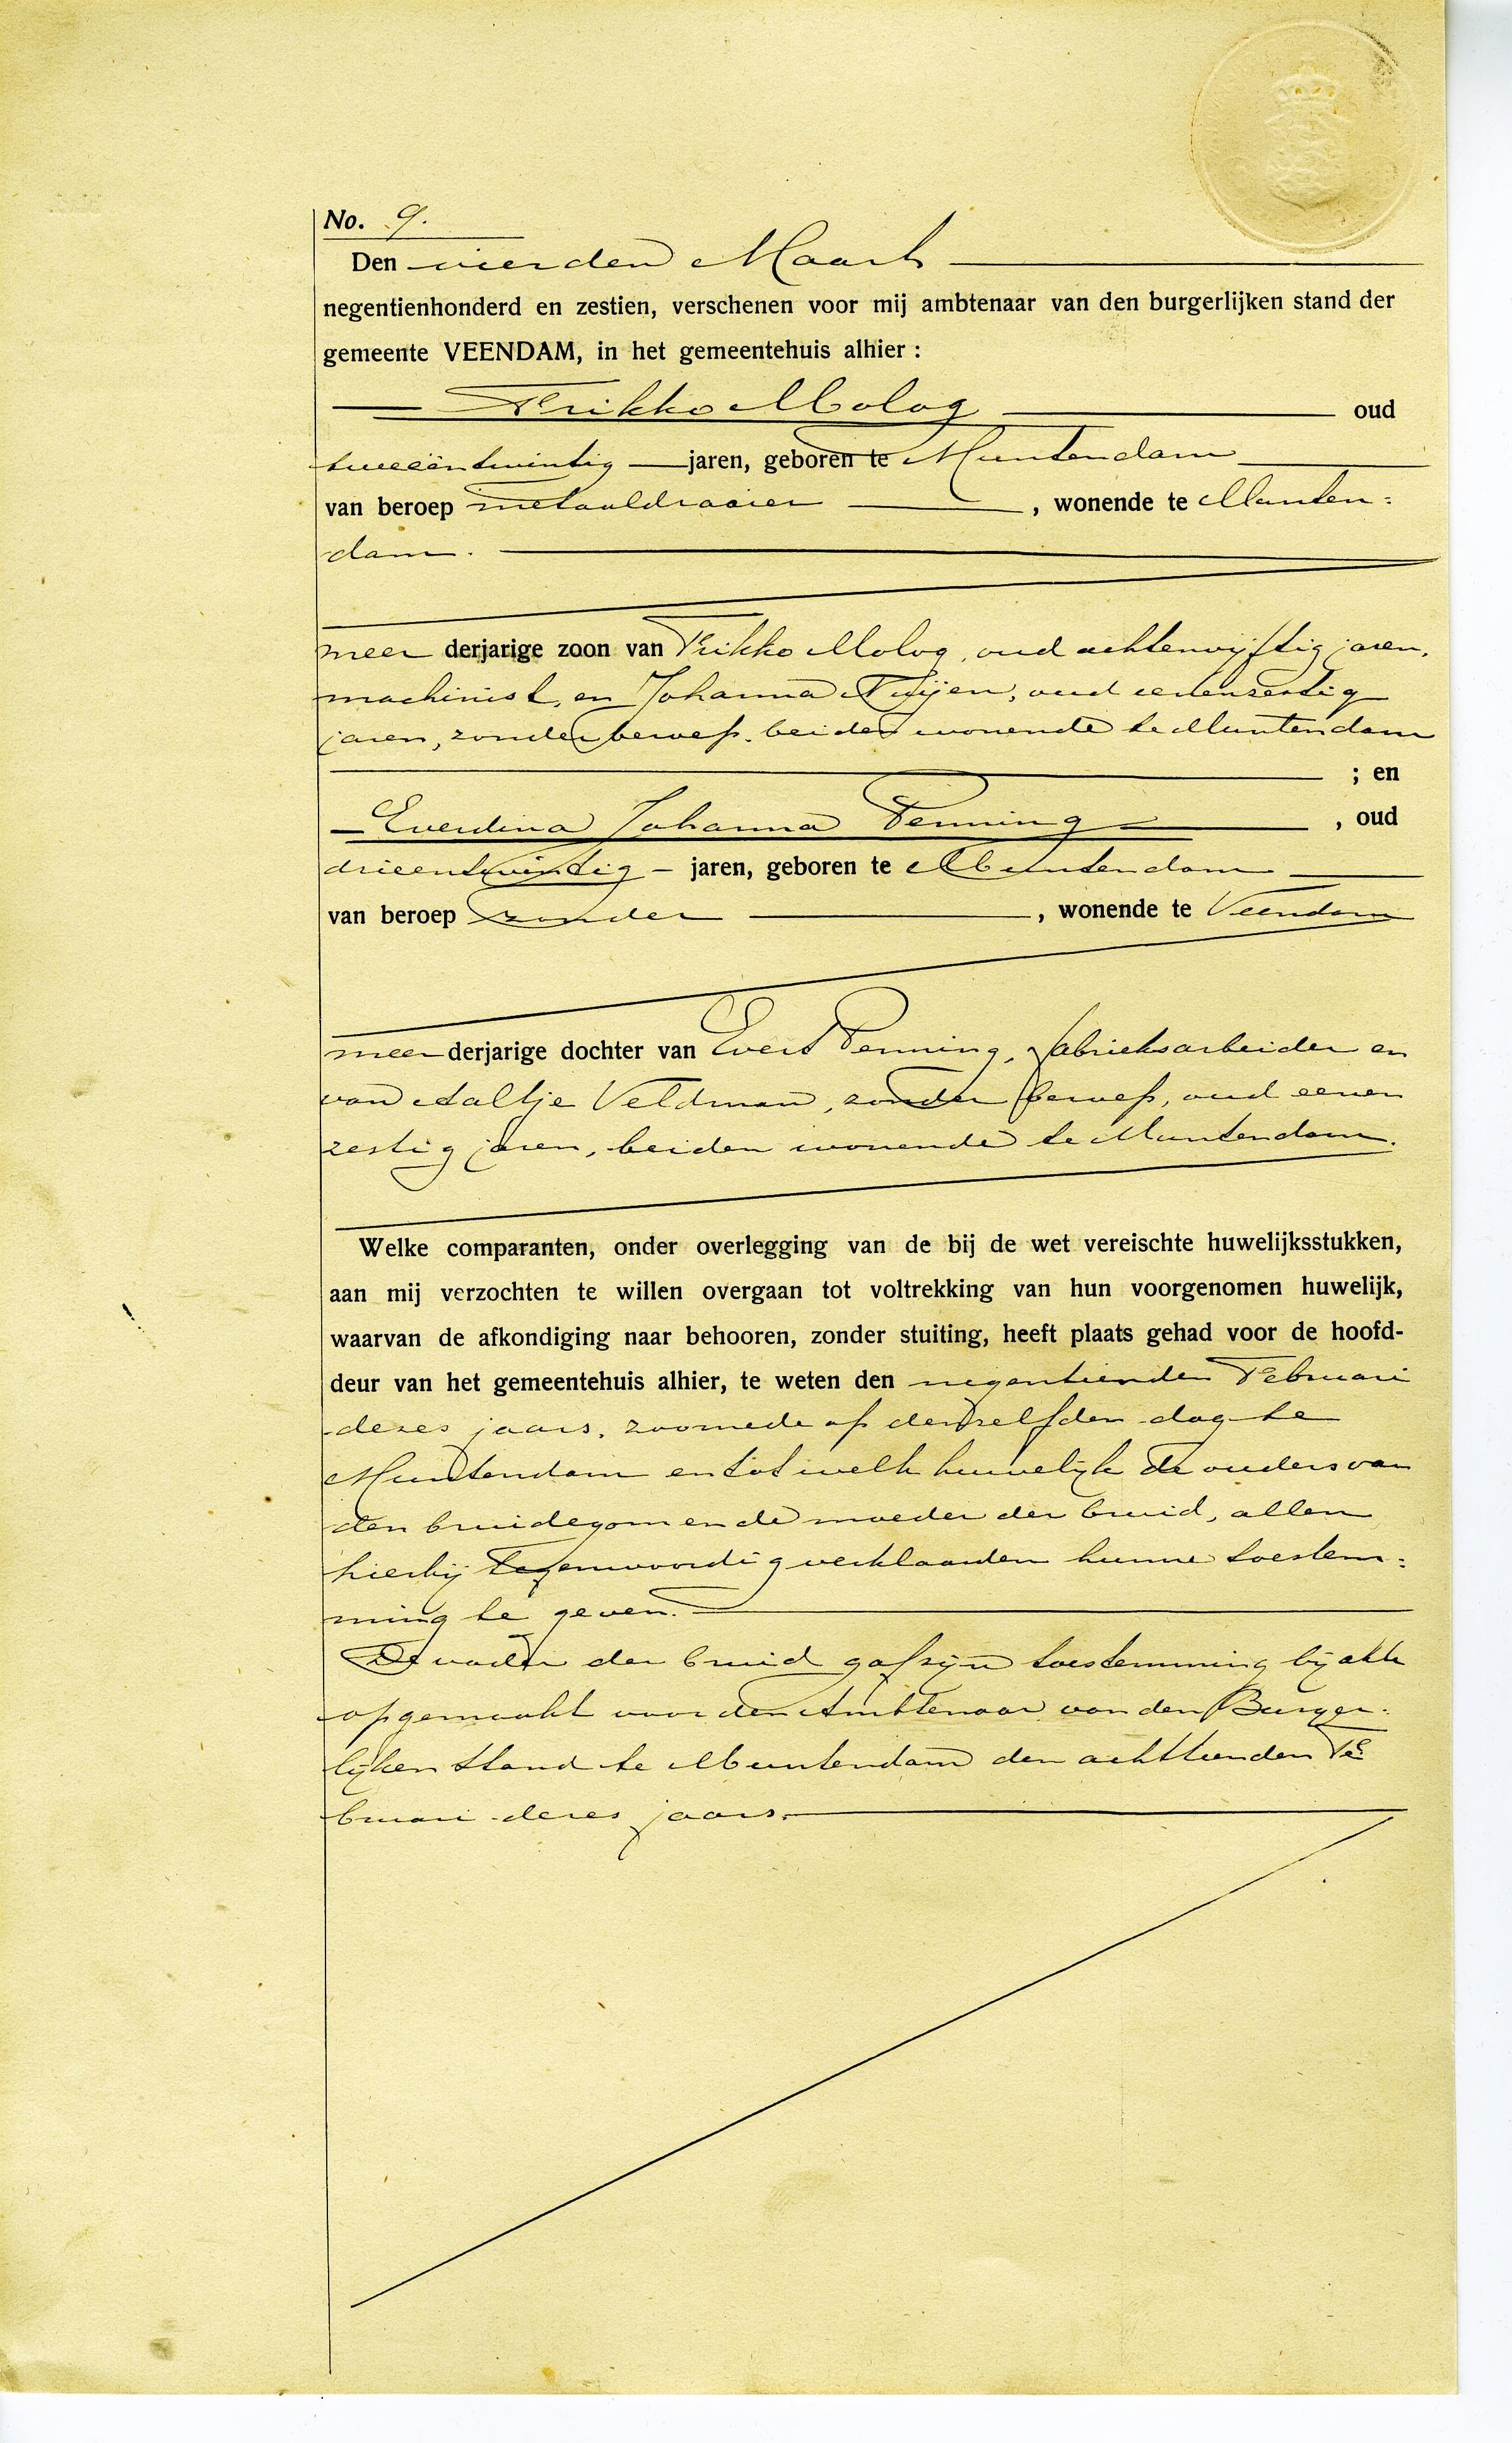 No. 9.
Den vierden Maart
negentienhonderd en zestien, verschenen voor mij ambtenaar van den burgerlijken stand der
gemeente VEENDAM, in het gemeentehuis alhier :
Frikko Molog oud
tweeëntwintig jaren, geboren te Muntendam
van beroep metaaldraaier , wonende te Munten=
dam.
meer derjarige zoon van Frikko Molog, oud achtenvijftig jaren,
machinist, en Johanna oud
jaren, zonder beroep, beiden wonende te Muntendam
; en
Everdina Johanna Penning , oud
drieentwintig – jaren, geboren te Muntendam
van beroep zonder , wonende te Veendam
meer derjarige dochter van Evert Penning, fabrieksarbeider en
van Aaltje Veldman, zonder beroep, oud eenen
zestig jaren, beiden wonende te Muntendam.
Welke comparanten, onder overlegging van de bij de wet vereischte huwelijksstukken,
aan mij verzochten te willen overgaan tot voltrekking van hun voorgenomen huwelijk,
waarvan de afkondiging naar behooren, zonder stuiting, heeft plaats gehad voor de hoofd-
deur van het gemeentehuis alhier, te weten den negentienden Februari
dezes jaars, zoomede op denzelfden dag te
Muntendam en tot welk huwelijk de ouders van
den bruidegom en de moeder der bruid, allen
hierbij tegenwoordig verklaarden hunne toestem=
ming te geven.
De vader der bruid gaf zijn toestemming bij akte
opgemaakt voor den Ambtenaar van den Burger=
lijken Stand te Muntendam den achttienden Fe=
bruari dezes jaars.